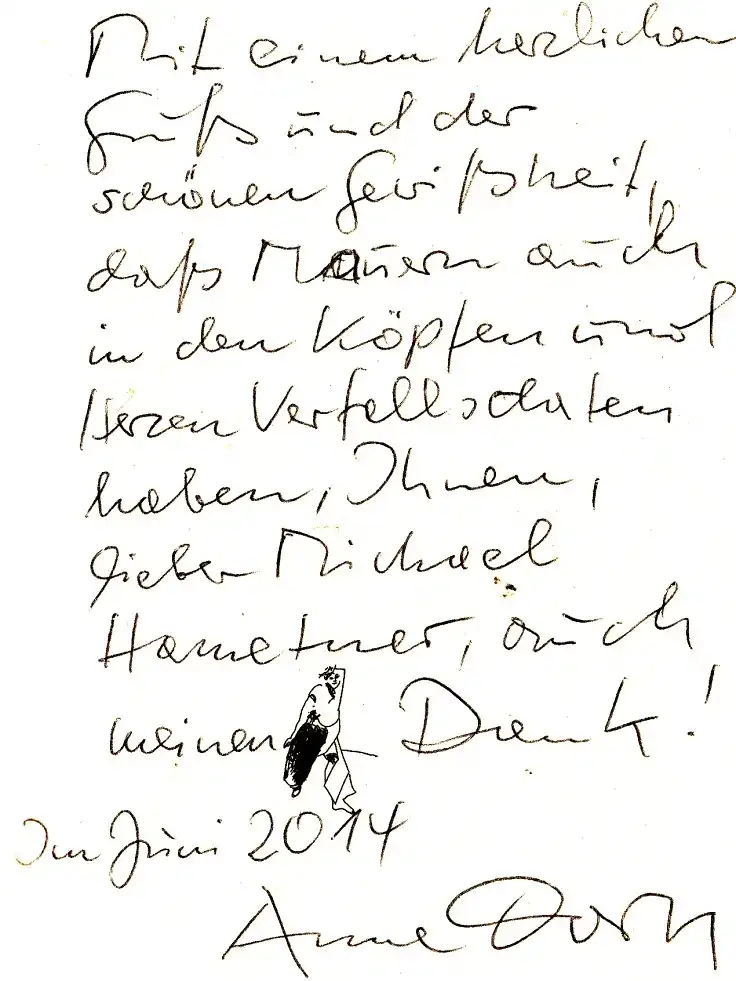 Mit einem herzlichen
Gruß und der
schönen Gewißheit,
daß Mauern auch
in den Köpfen und
Herzen Verfallsdaten
haben, Ihnen,
lieber Michael
Hametner, auch
meinen Dank!
Im Juni 2014
Anne Dorn